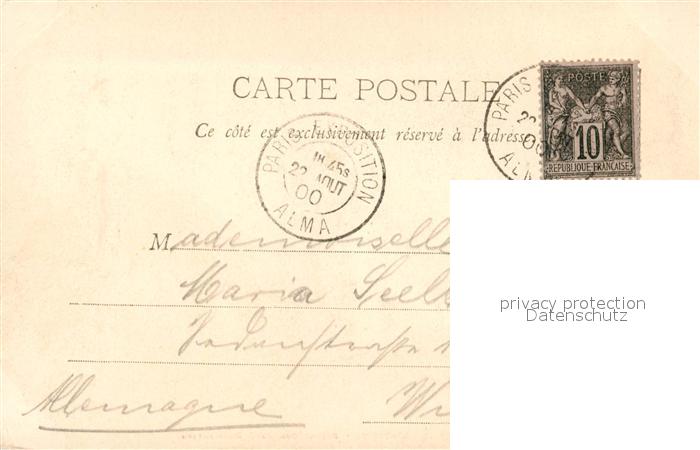 CARTE POSTALE
Ce côté est exclusivement réservé à l'adresse
PARIS EXPOSITION
45s
22 AOUT
00
ALMA
PARIS
22
00
ALM
POSTE
10
REPUBLIQUE FRANÇAISE
Mademoiselle
Maria
Allemagne
privacy protection
Datenschutz